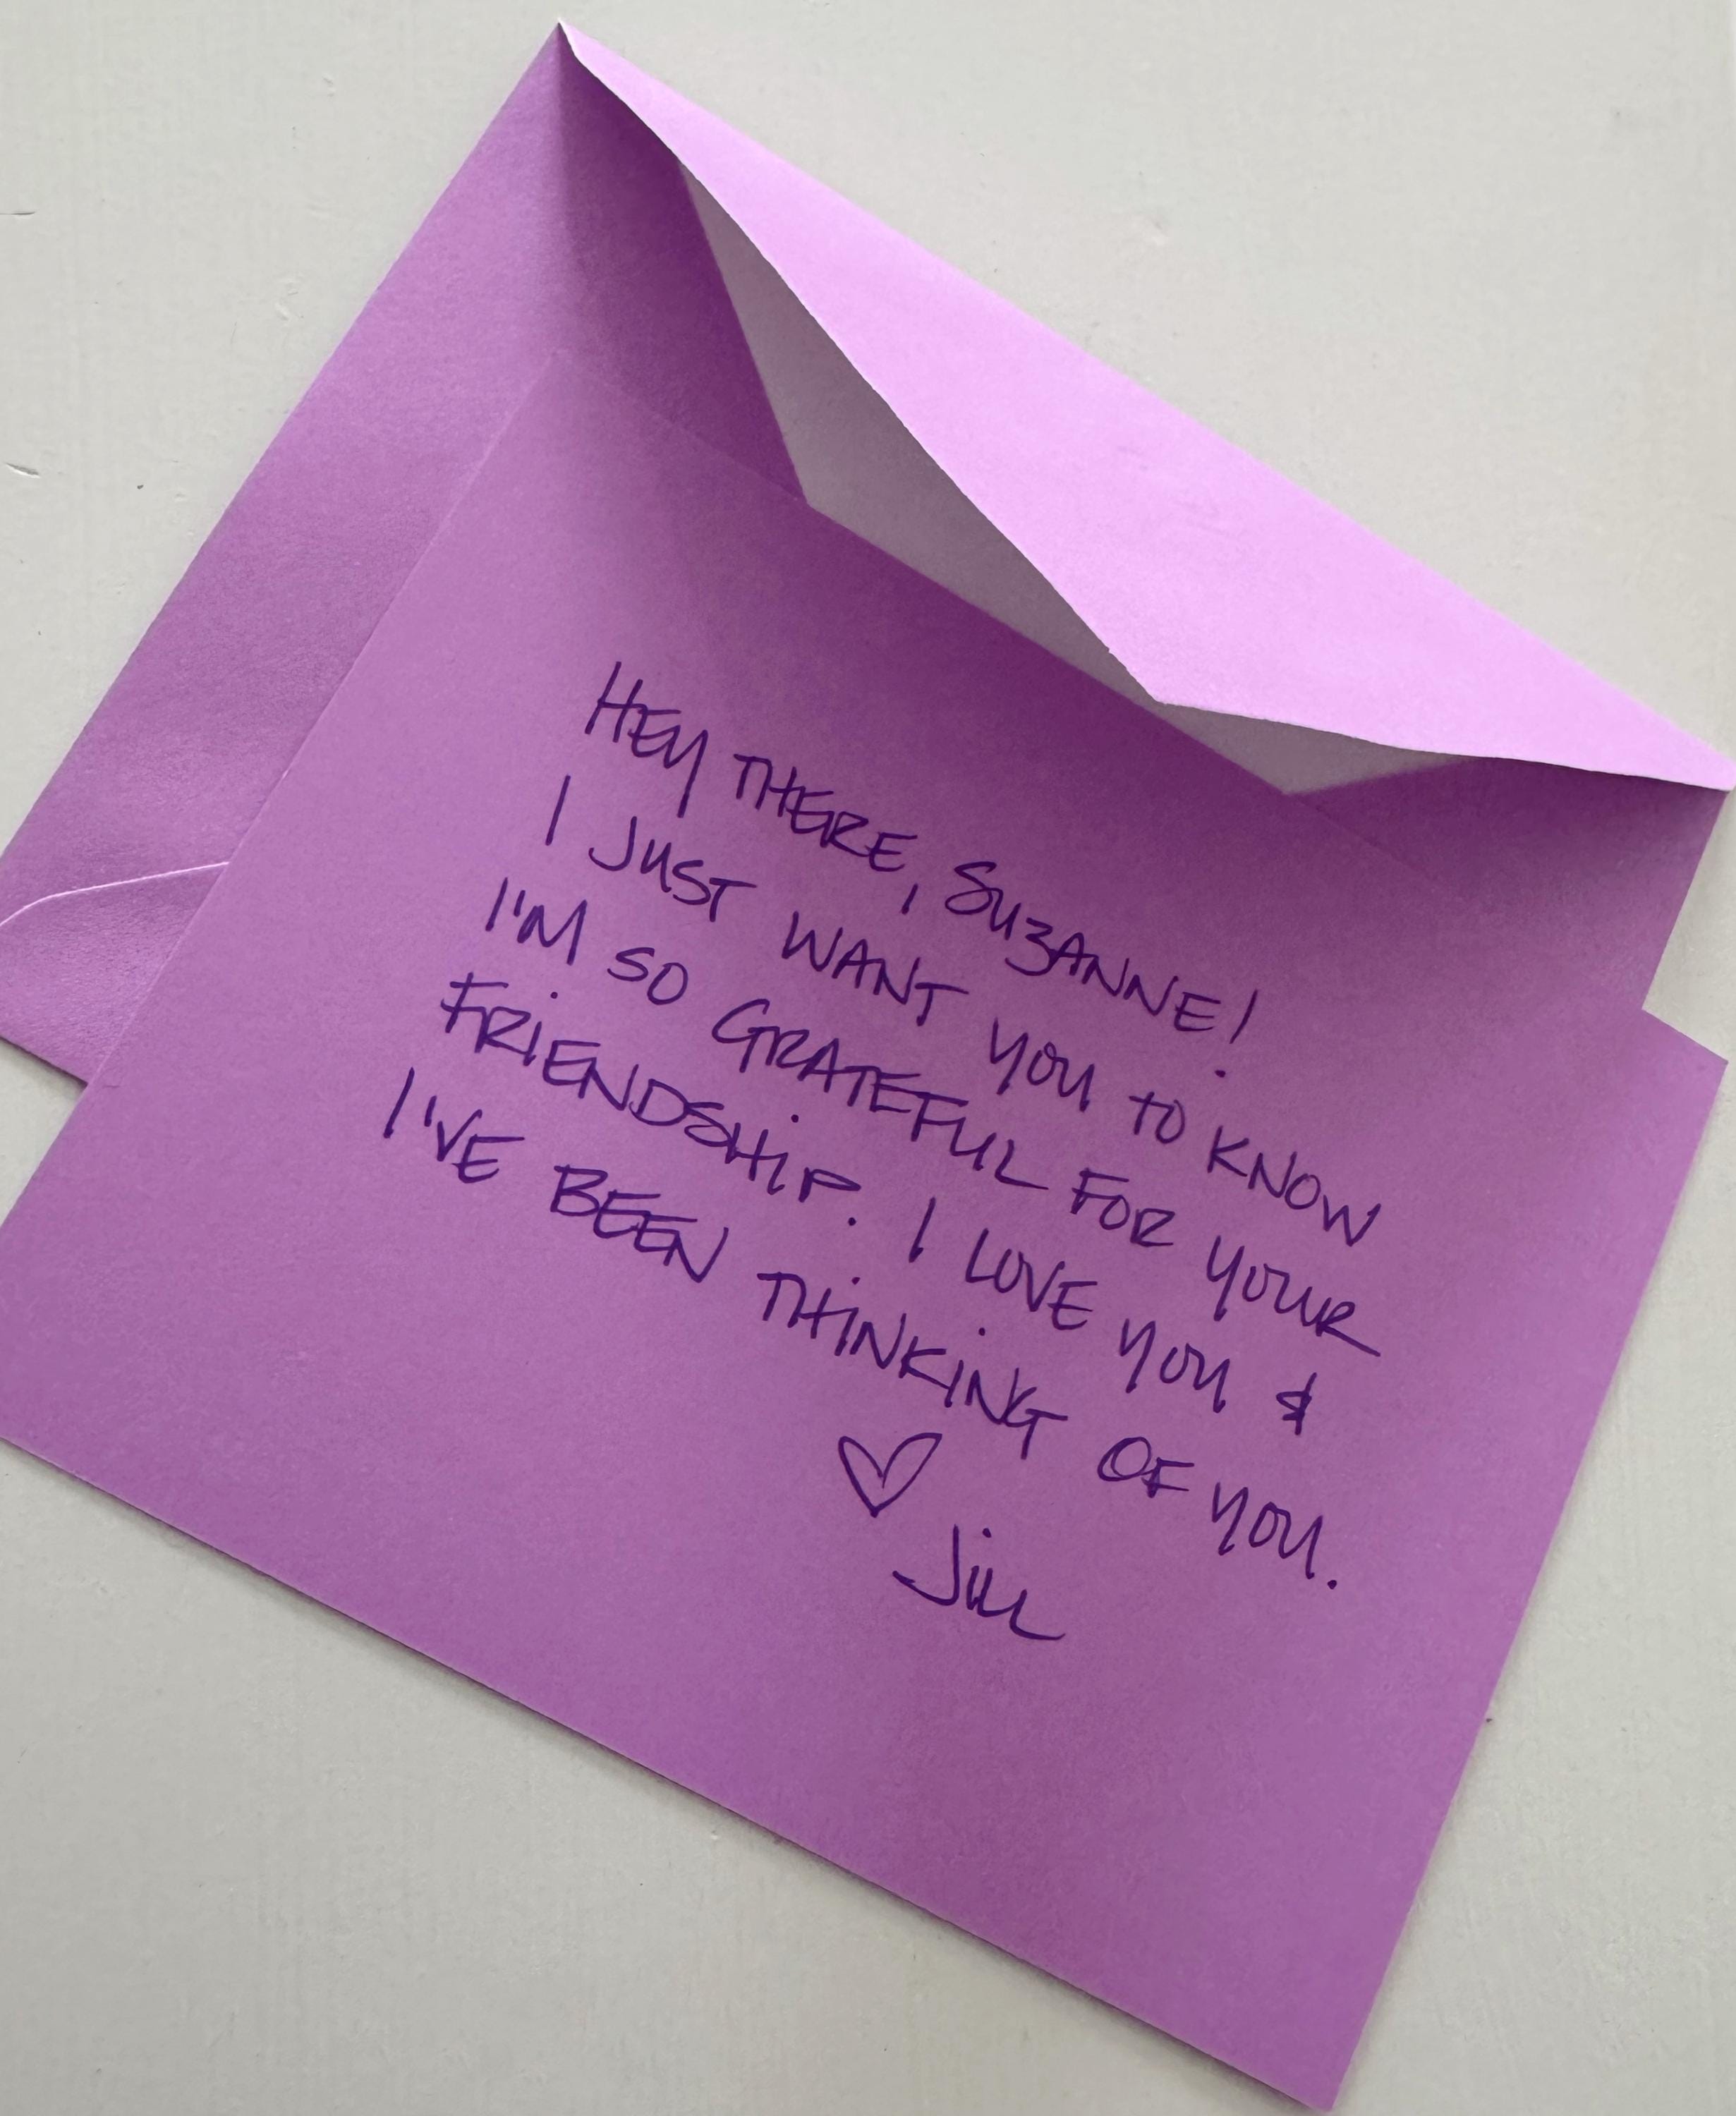 HEY THERE, SUZANNE!
I JUST WANT YOU TO KNOW
I'M SO GRATEFUL FOR YOUR
FRIENDSHIP. I LOVE YOU &
I'VE BEEN THINKING OF YOU.
♡
Jill